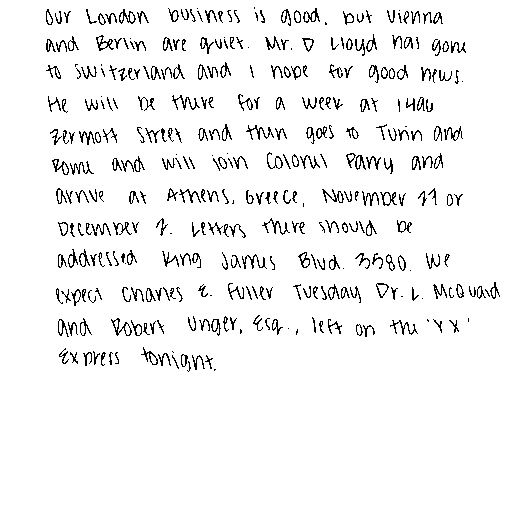 Our London business is good, but Vienna
and Berlin are quiet. Mr. D Lloyd has gone
to Switzerland and I hope for good news.
He will be there for a week at 1496
Zermott Street and then goes to Turin and
Rome and will join Colonel Parry and
arrive at Athens, Greece, November 27 or
December 2. Letters there should be
addressed King James Blvd. 3580. We
expect Charles E. Fuller Tuesday Dr. L. McQuaid
and Robert Unger, Esq., left on the 'Y X'
Express tonight.